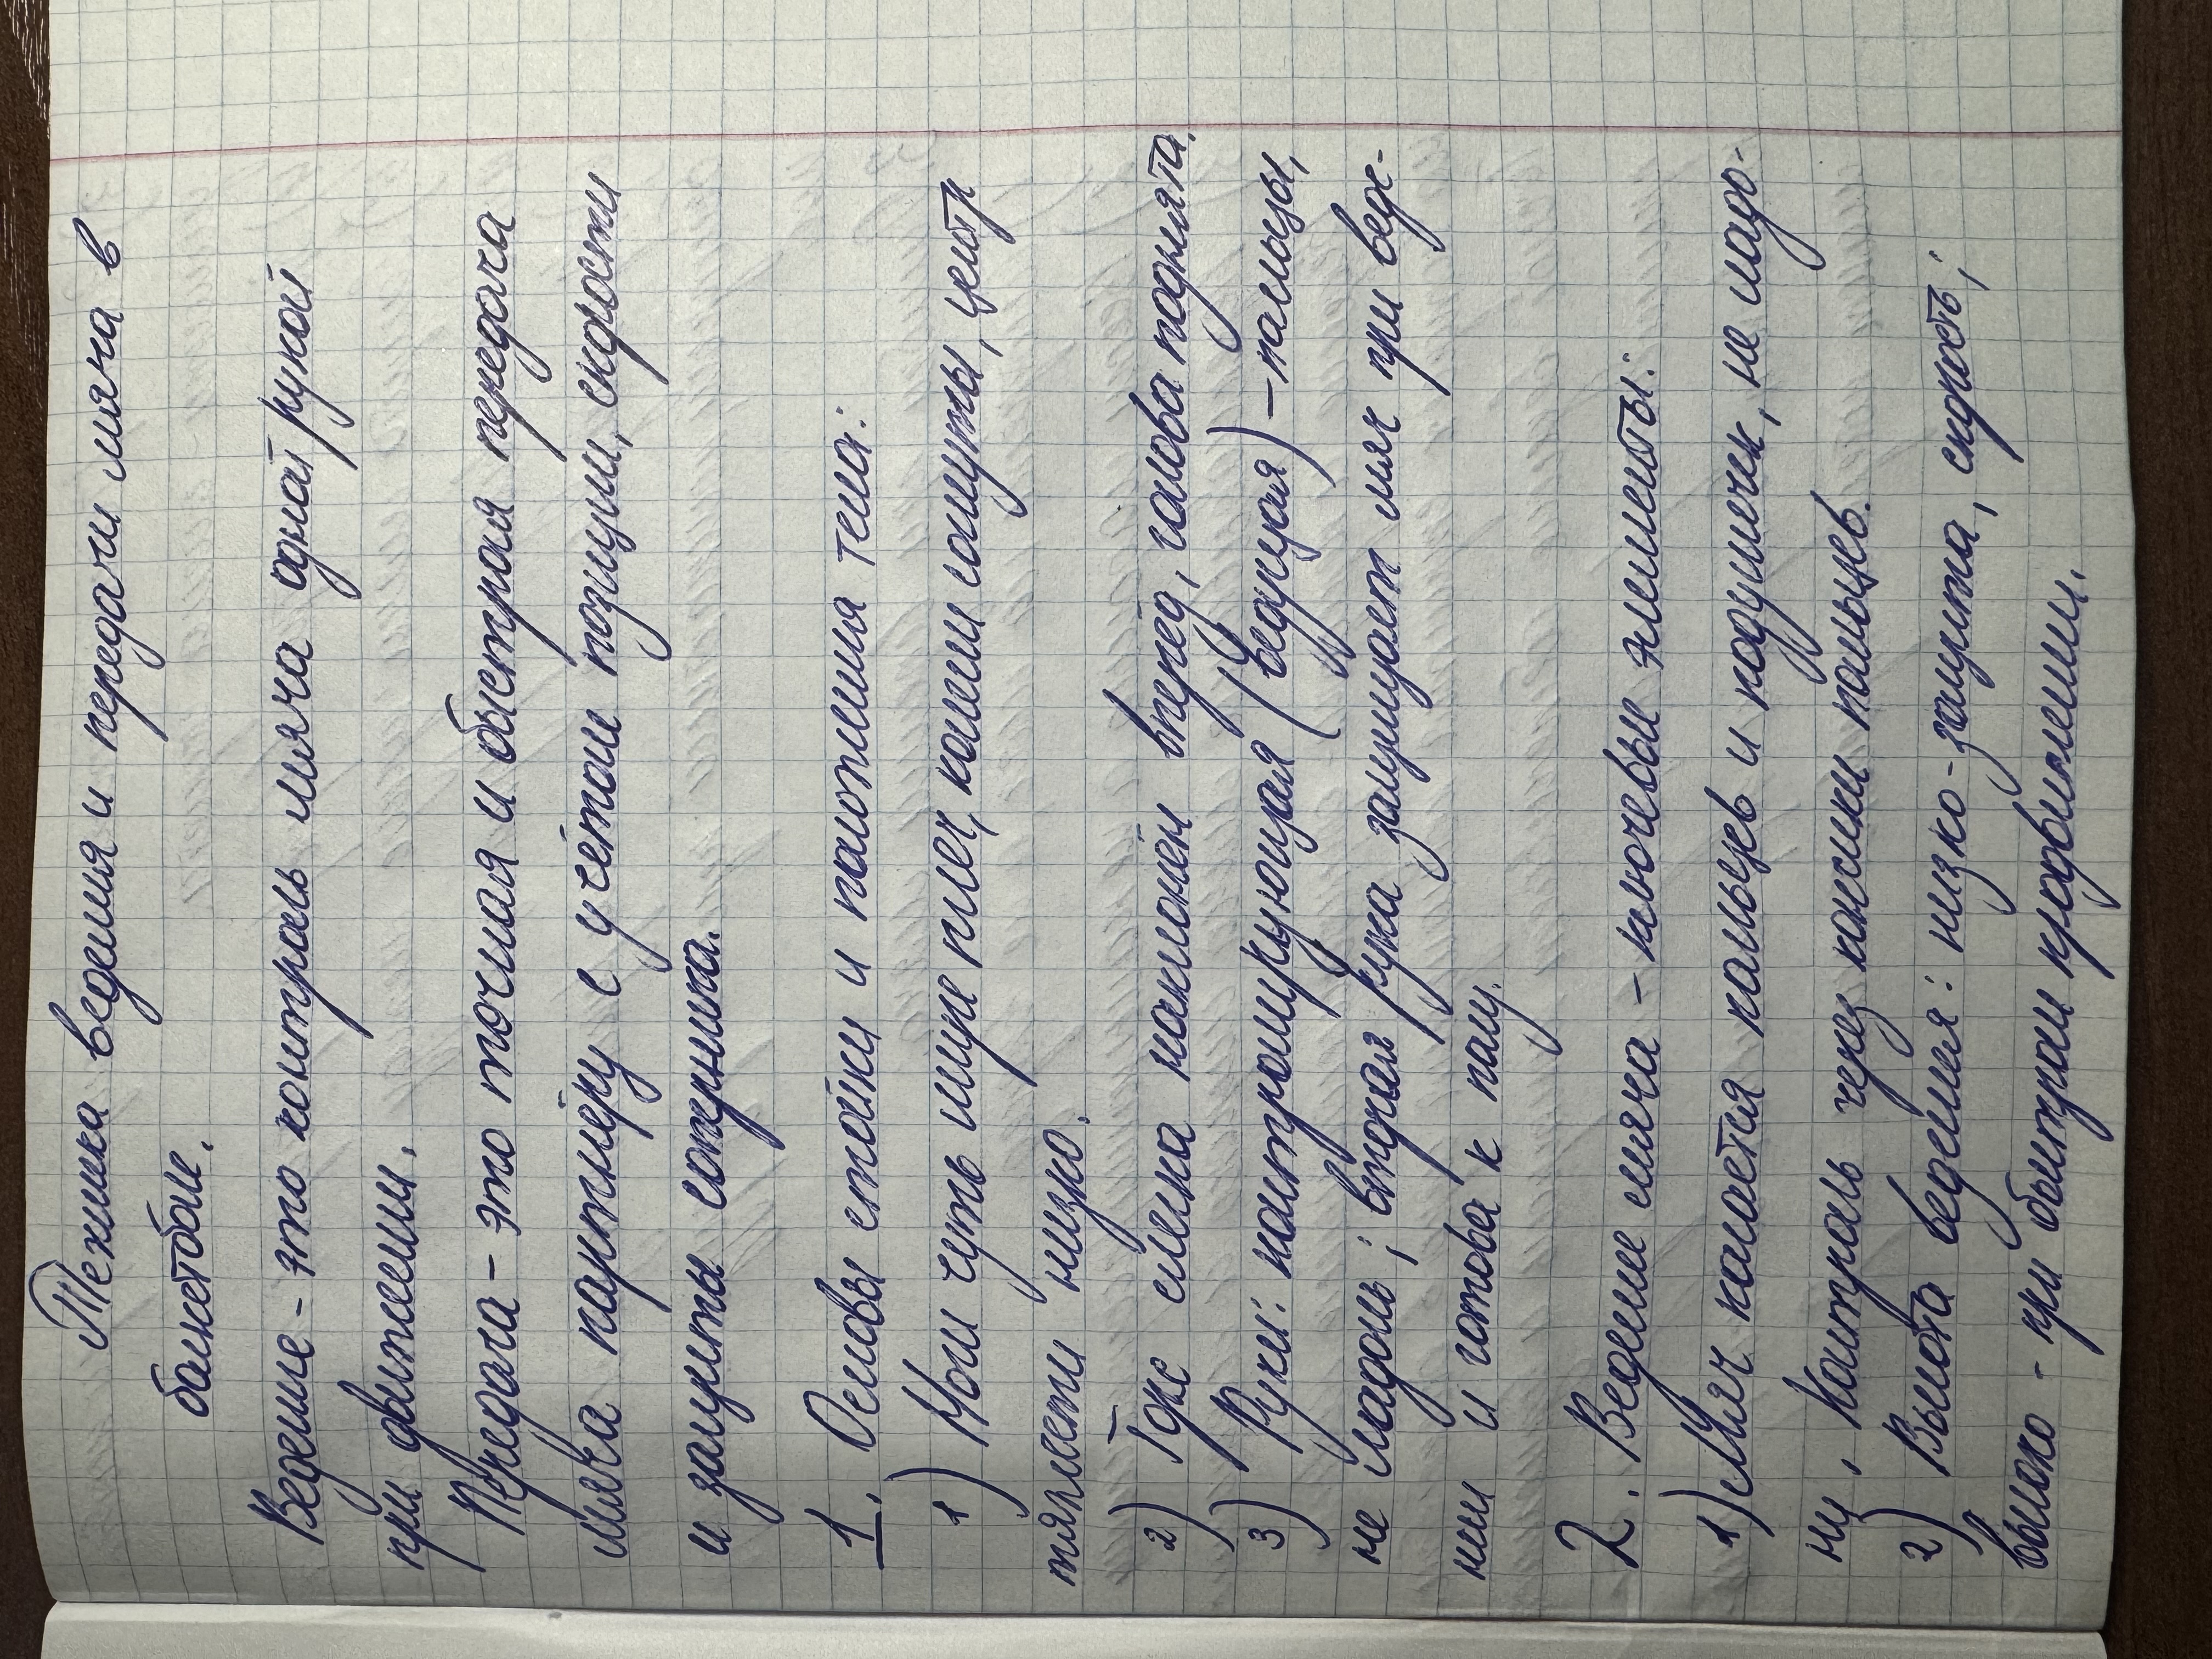 Техника ведения и передачи мяча в
баскетболе.
Ведение - это контроль мяча одной рукой
при движении.
Передача - это точная и быстрая передача
мяча партнёру с учётом позиции, скорости
и защиты соперника.
1. Основы стойки и положения тела:
1) Ноги чуть шире плеч, колени согнуты, центр
тяжести низко.
2) Торс слегка наклонён вперёд, голова поднята.
3) Руки: контролирующая (ведущая) - пальцы,
не ладонь; вторая рука защищает мяч при веде-
нии и готова к пасу.
2. Ведение мяча - ключевые элементы:
1) Мяч касается пальцев и подушечек, не ладо-
ни. Контроль через кончики пальцев.
2) Высота ведения: низко - защита, скорость;
высоко - при быстром продвижении.